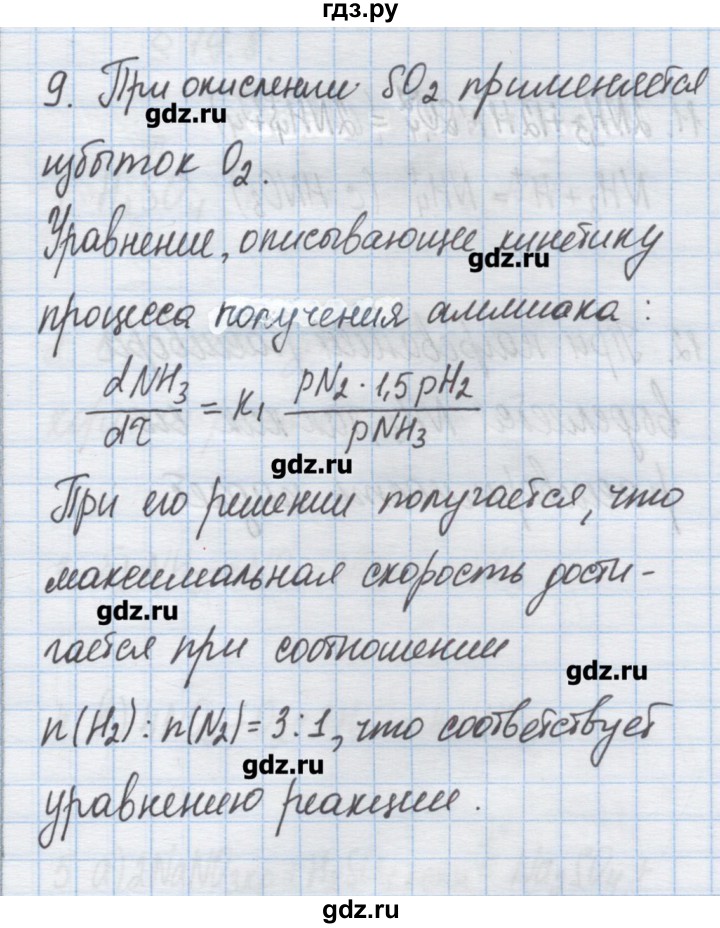 гдз.ру
9. При окислении SO2 применяется
gdz.ru
избыток O2.
Уравнение, описывающее кинетику
gdz.ru
процесса получения аммиака:
dNH3/dτ = K1 pN2 · 1,5pH2/pNH3
gdz.ru
При его решении получается, что
максимальная скорость дости-
gdz.ru
гается при соотношении
gdz.ru
n(H2) : n(N2) = 3 : 1, что соответствует
gdz.ru
уравнению реакции.
gdz.ru